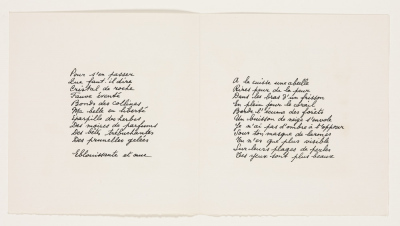 Pour s'en passer
Que faut il dire
Cristal de roche
Fauve éventé
Bonds des collines
Ma belle en liberté
Eparpille des herbes
Des moires de parfums
Des
Des prunelles gelées
Eblouissante et nue
A la cuisse une abeille
Rires pour de la peur
Dans les bras d'un frisson
En plein jour le corail
Borde l'écume des forêts
Un buisson de neige s'envole
Je n'ai pas d'ombre à t'opposer
Sous ton masque de larmes
Tu n'es que plus visible
Sur leurs plages de perles
Ces yeux sont plus beaux